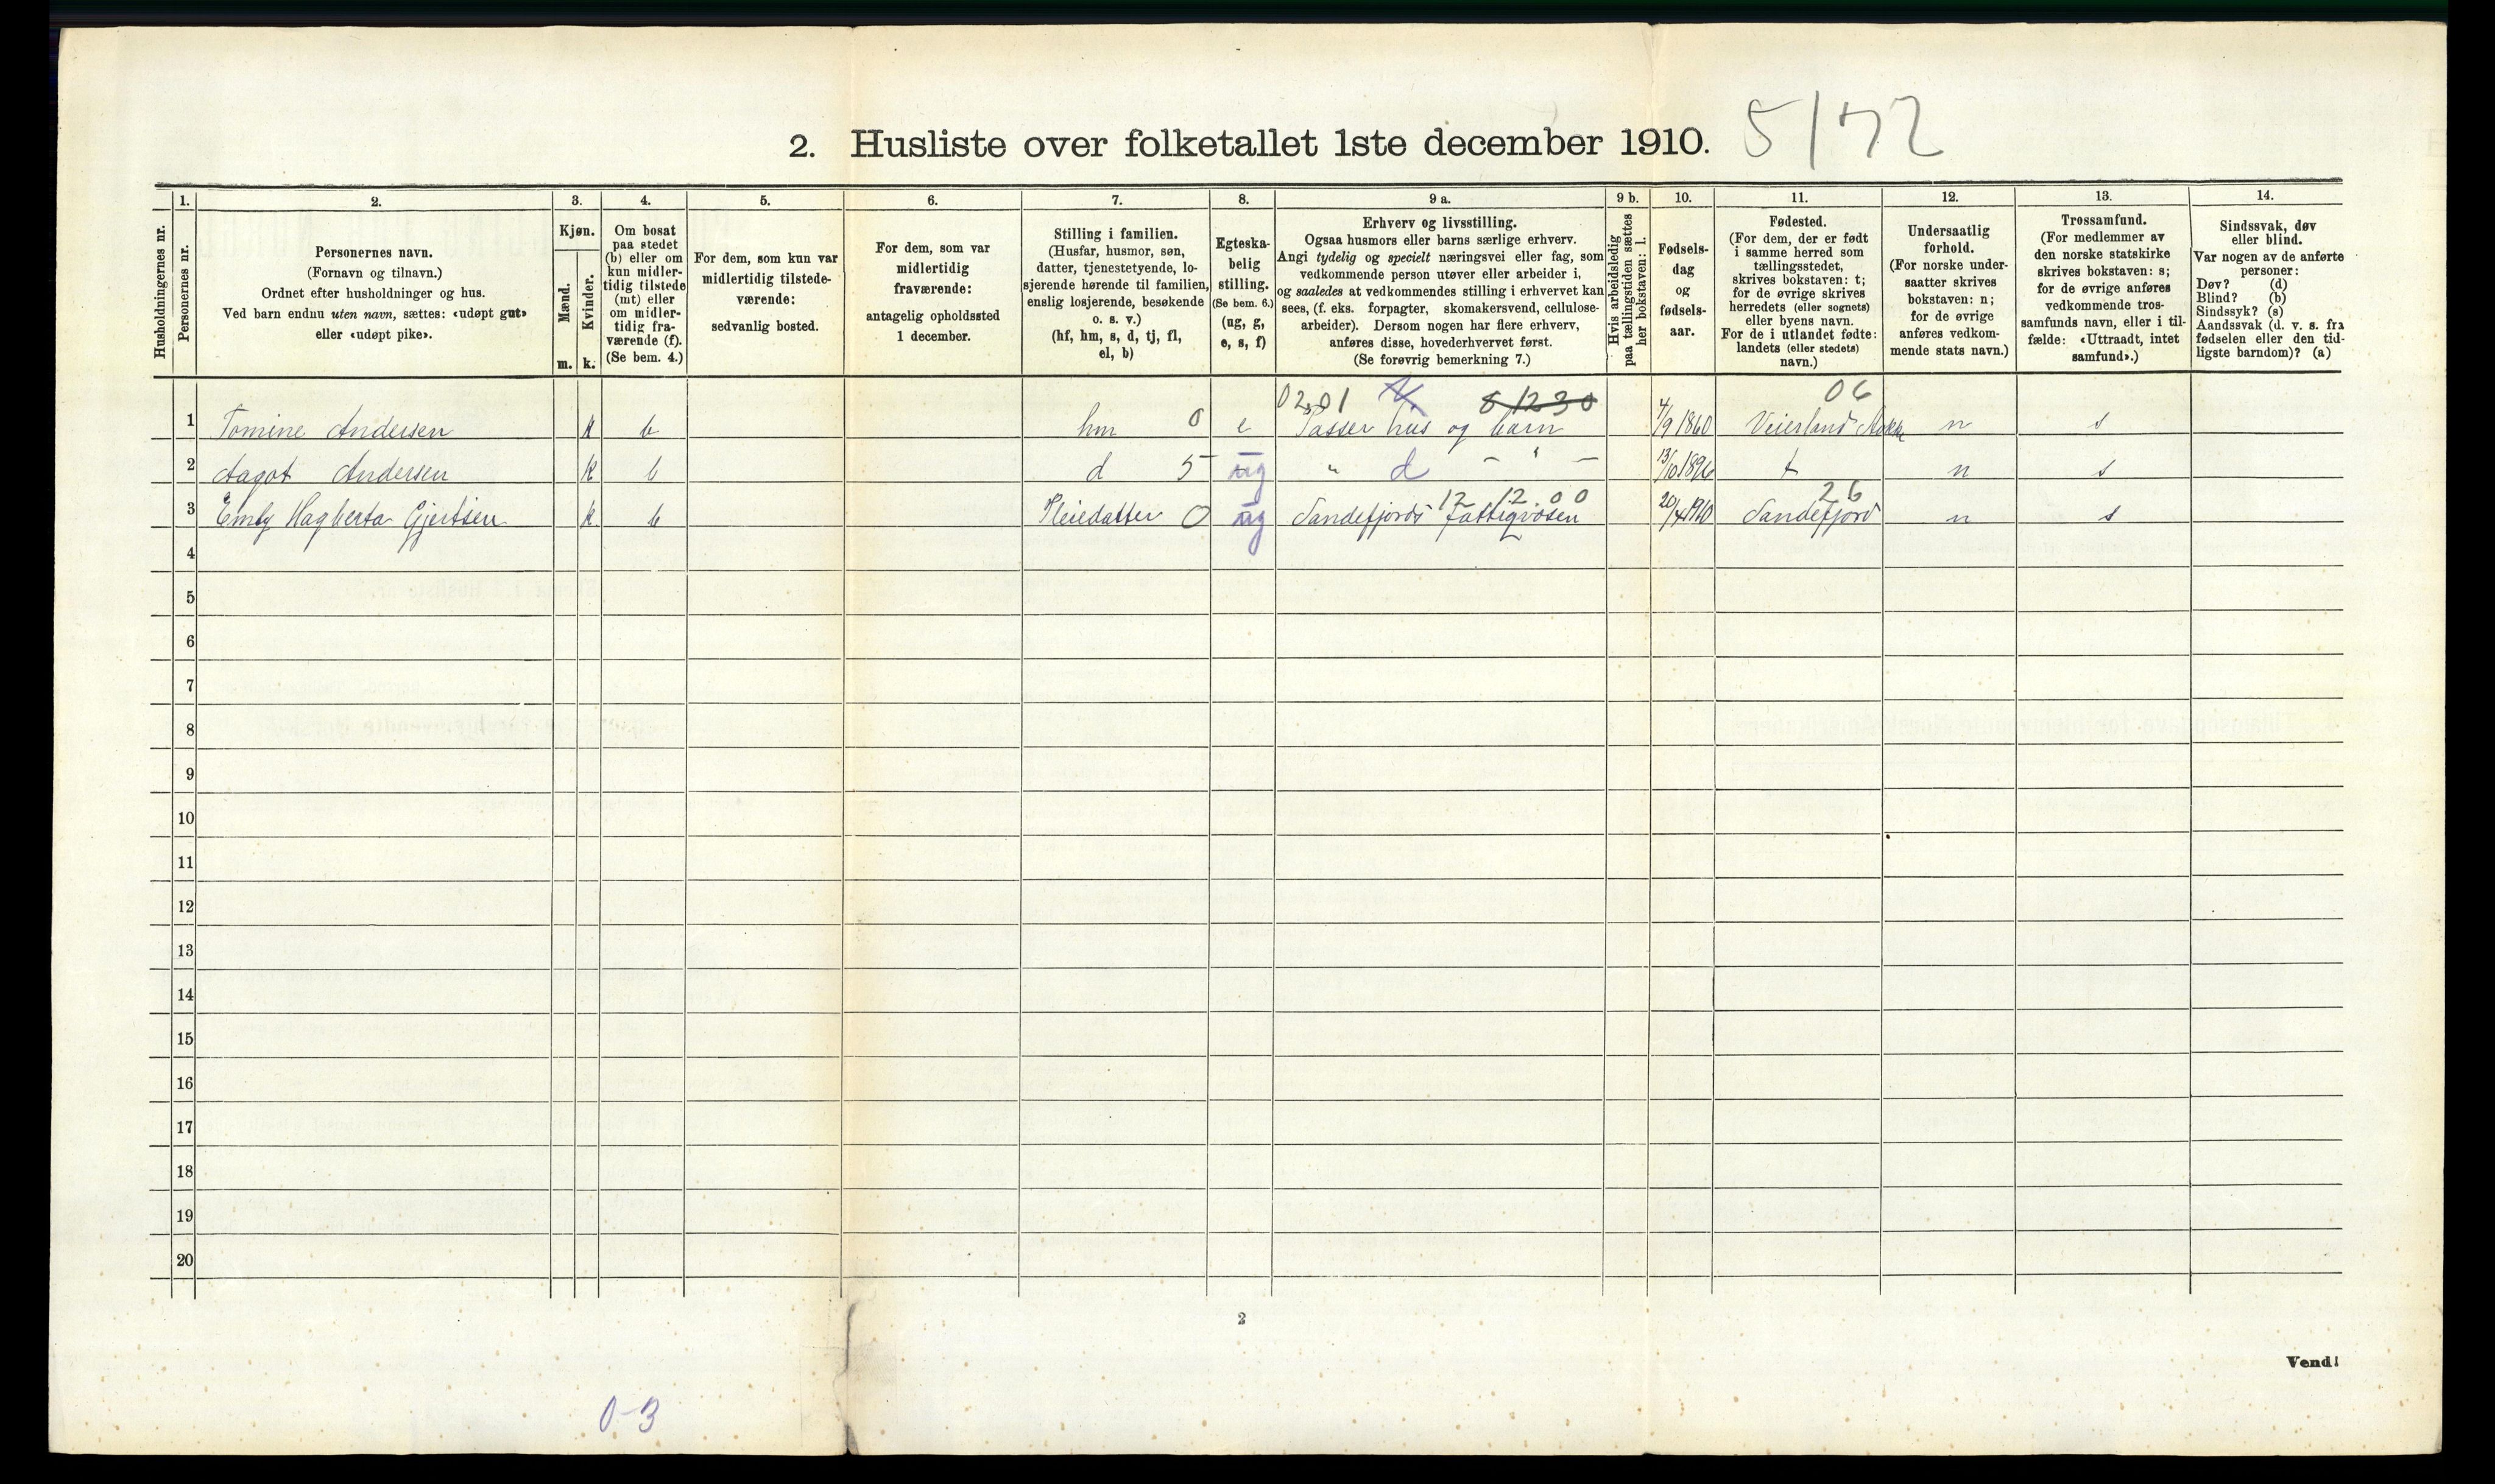 2. Husliste over folketallet 1ste december 1910. 5/72
Husholdningernes nr.
1. Personernes nr.
2. Personernes navn.
(Fornavn og tilnavn.)
Ordnet efter husholdninger og hus.
Ved barn endnu uten navn, sættes: «udøpt gut»
eller «udøpt pike».
3. Kjøn.
Mænd. m.
Kvinder. k.
4. Om bosat
paa stedet
(b) eller om
kun midler-
tidig tilstede
(mt) eller
om midler-
tidig fra-
værende (f).
(Se bem. 4.)
5. For dem, som kun var
midlertidig tilstede-
værende:
sedvanlig bosted.
6. For dem, som var
midlertidig
fraværende:
antagelig opholdssted
1 december.
7. Stilling i familien.
(Husfar, husmor, søn,
datter, tjenestetyende, lo-
sjerende hørende til familien,
enslig losjerende, besøkende
o. s. v.)
(hf, hm, s, d, tj, fl,
el, b)
8. Egteska-
belig
stilling.
(Se bem. 6.)
(ug, g,
e, s, f)
9 a. Erhverv og livsstilling.
Ogsaa husmors eller barns særlige erhverv.
Angi tydelig og specielt næringsvei eller fag, som
vedkommende person utøver eller arbeider i,
og saaledes at vedkommendes stilling i erhvervet kan
sees, (f. eks. forpagter, skomakersvend, cellulose-
arbeider). Dersom nogen har flere erhverv,
anføres disse, hovederhvervet først.
(Se forøvrig bemerkning 7.)
9 b. Hvis arbeidsledig
paa tællingstiden sættes
her bokstaven: l.
10. Fødsels-
dag
og
fødsels-
aar.
11. Fødested.
(For dem, der er født
i samme herred som
tællingsstedet,
skrives bokstaven: t;
for de øvrige skrives
herredets (eller sognets)
eller byens navn.
For de i utlandet fødte:
landets (eller stedets)
navn.)
12. Undersaatlig
forhold.
(For norske under-
saatter skrives
bokstaven: n;
for de øvrige
anføres vedkom-
mende stats navn.)
13. Trossamfund.
(For medlemmer av
den norske statskirke
skrives bokstaven: s;
for de øvrige anføres
vedkommende tros-
samfunds navn, eller i til-
fælde: «Uttraadt, intet
samfund».)
14. Sindssvak, døv
eller blind.
Var nogen av de anførte
personer:
Døv? (d)
Blind? (b)
Sindssyk? (s)
Aandssvak (d. v. s. fra
fødselen eller den tid-
ligste barndom)? (a)
1230 06
1 Tomine Andersen k b hm 0 e Passer hus og barn 4/9 1860 Veierland n s
2 Aagot Andersen k b d 5 ug " d - " - 13/10 1896 t n s
12 12.00 26
3 Emly Hagberta Gjertsen k b Pleiedatter 0 ug Sandefjords fattigvæsen 20/4 1910 Sandefjord n s
4
5
6
7
8
9
10
11
12
13
14
15
16
17
18
19
20
2
Vend!
0-3